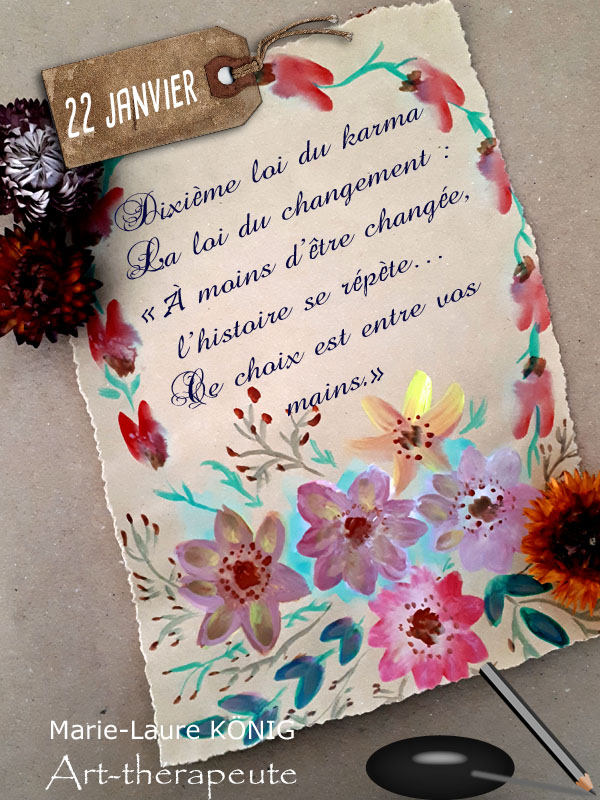 22 JANVIER
Dixième loi du karma
La loi du changement :
« À moins d'être changée,
l'histoire se répète...
Le choix est entre vos
mains.»
Marie-Laure KÖNIG
Art-thérapeute